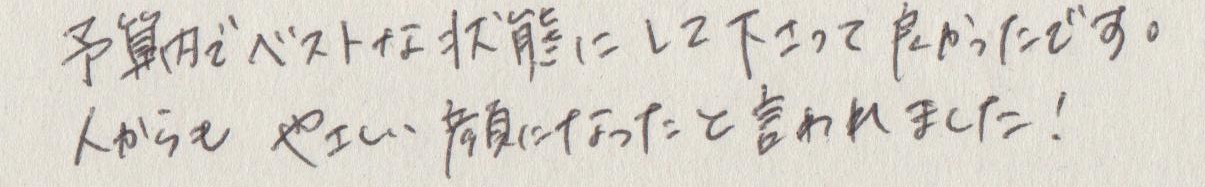 予算内でベストな状態にして下さって良かったです。
人からも やさしい 顔になったと言われました！